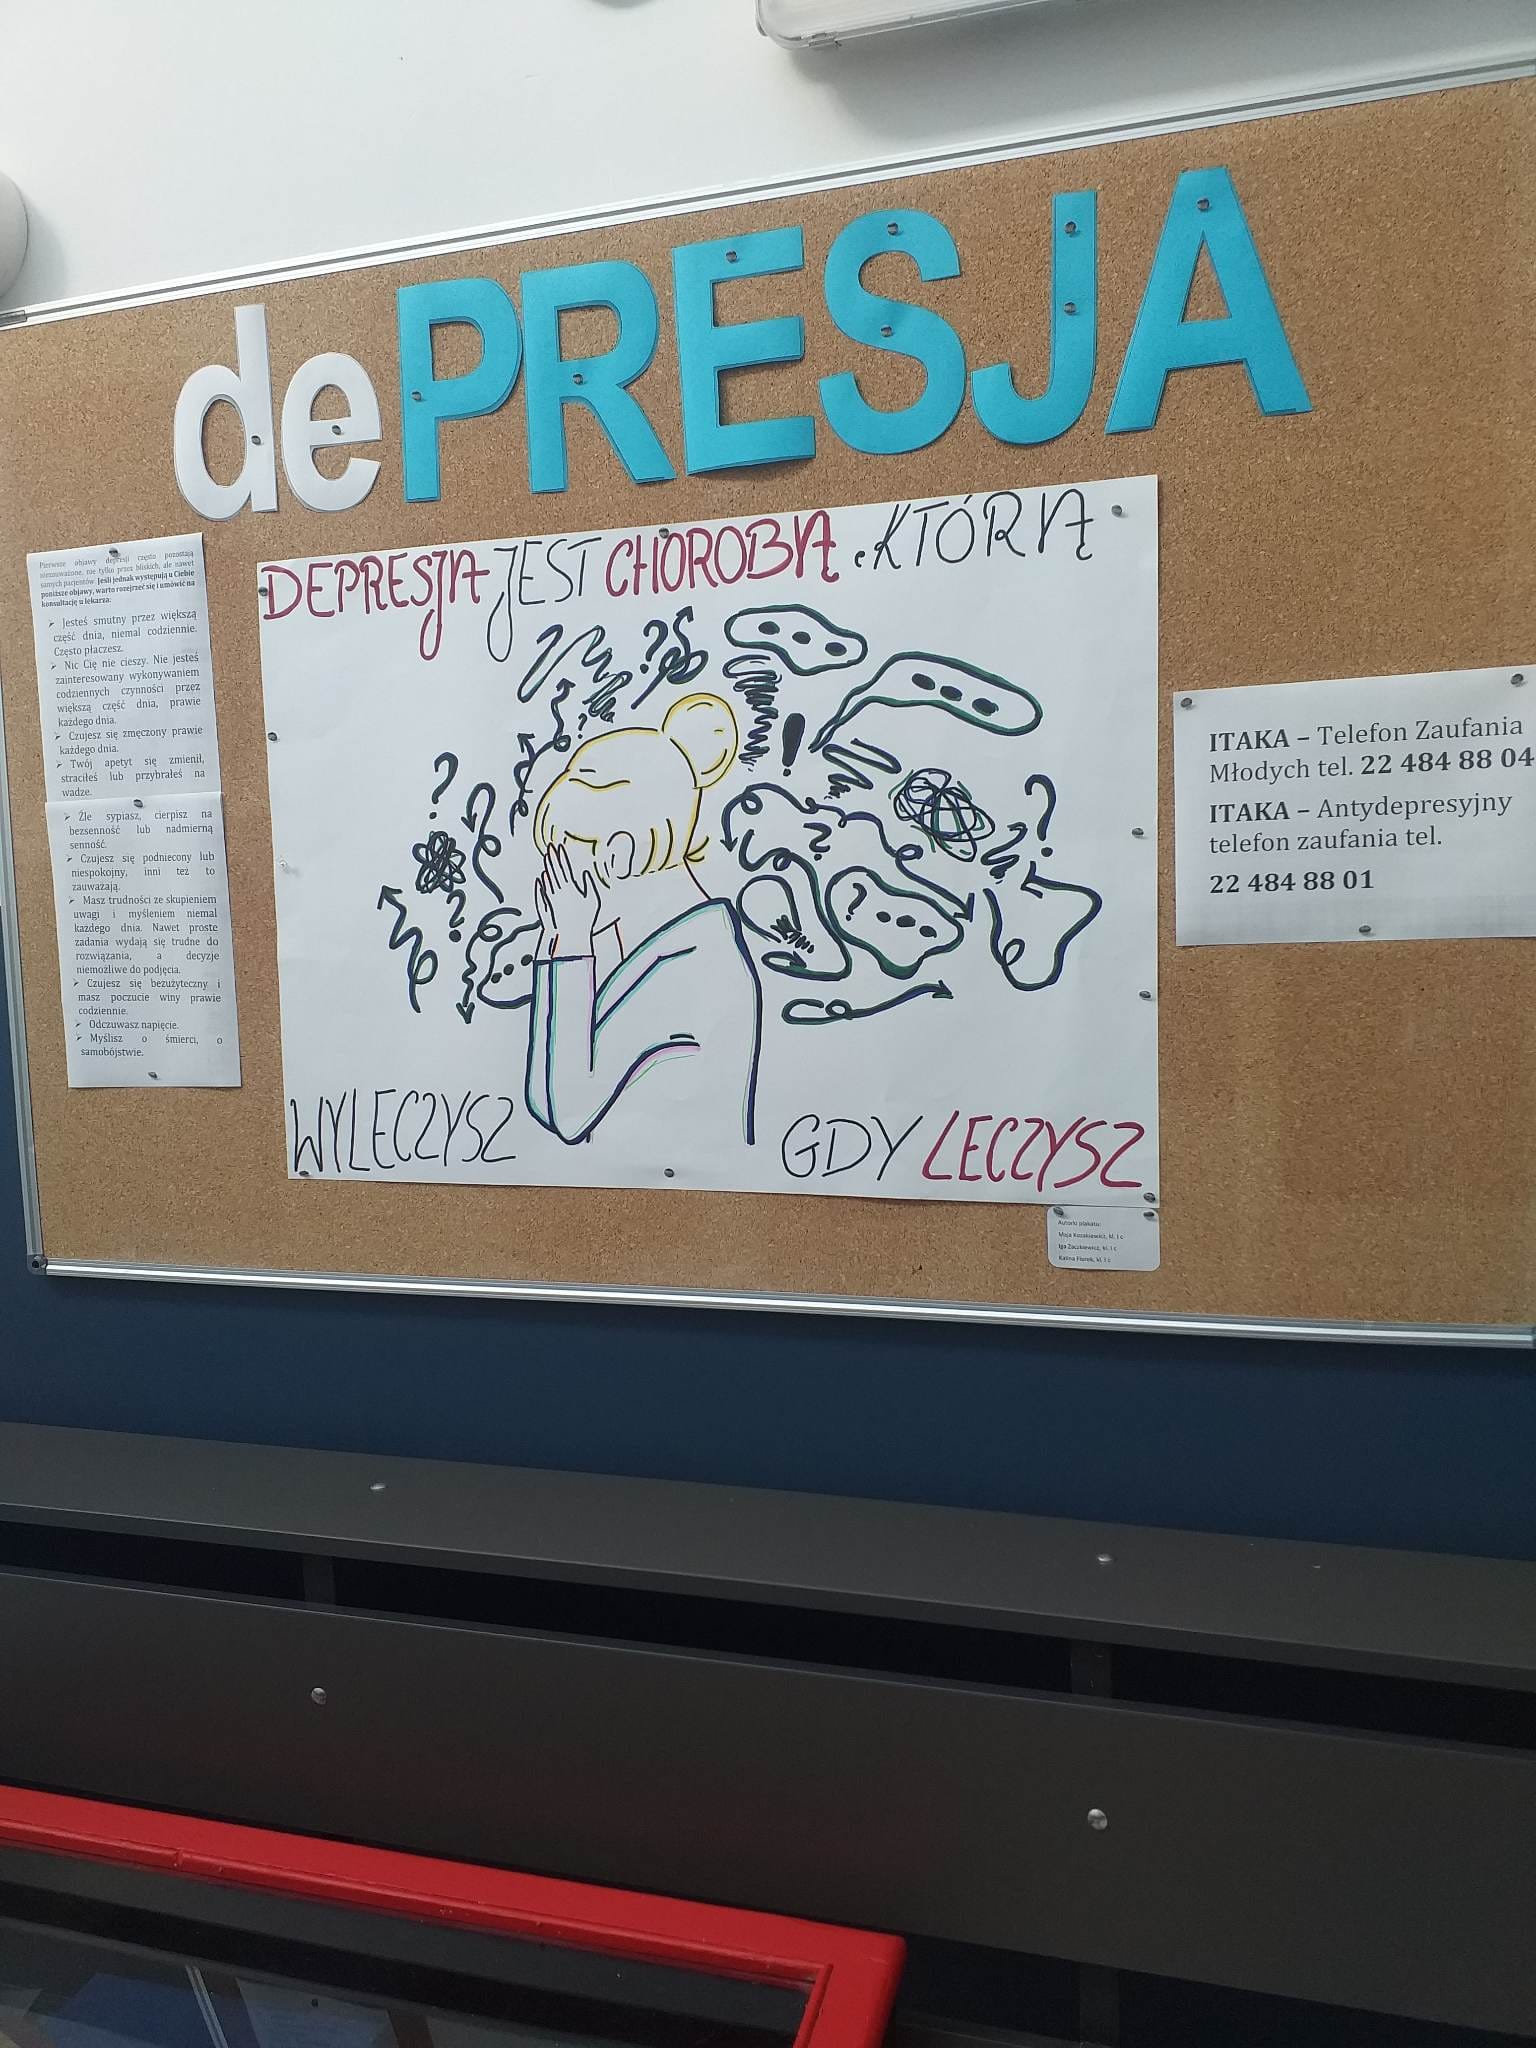 dePRESJA
DEPRESJA JEST CHOROBĄ, KTÓRĄ
WYLECZYSZ GDY LECZYSZ
Pierwsze objawy depresji często pozostają
niezauważone, nie tylko przez bliskich, ale nawet
samych pacjentów. Jeśli jednak występują u Ciebie
poniższe objawy, warto rozejrzeć się i umówić na
konsultację u lekarza:
➢ Jesteś smutny przez większą
część dnia, niemal codziennie.
Często płaczesz.
➢ Nic Cię nie cieszy. Nie jesteś
zainteresowany wykonywaniem
codziennych czynności przez
większą część dnia, prawie
każdego dnia.
➢ Czujesz się zmęczony prawie
każdego dnia.
➢ Twój apetyt się zmienił,
straciłeś lub przybrałeś na
wadze.
➢ Źle sypiasz, cierpisz na
bezsenność lub nadmierną
senność.
➢ Czujesz się podniecony lub
niespokojny, inni też to
zauważają.
➢ Masz trudności ze skupieniem
uwagi i myśleniem niemal
każdego dnia. Nawet proste
zadania wydają się trudne do
rozwiązania, a decyzje
niemożliwe do podjęcia.
➢ Czujesz się bezużyteczny i
masz poczucie winy prawie
codziennie.
➢ Odczuwasz napięcie.
➢ Myślisz o śmierci, o
samobójstwie.
ITAKA – Telefon Zaufania
Młodych tel. 22 484 88 04
ITAKA – Antydepresyjny
telefon zaufania tel.
22 484 88 01
Autorki plakatu:
Maja Kozakiewicz, kl. I c
Iga Zaczkiewicz, kl. I c
Kalina Florek, kl. I c